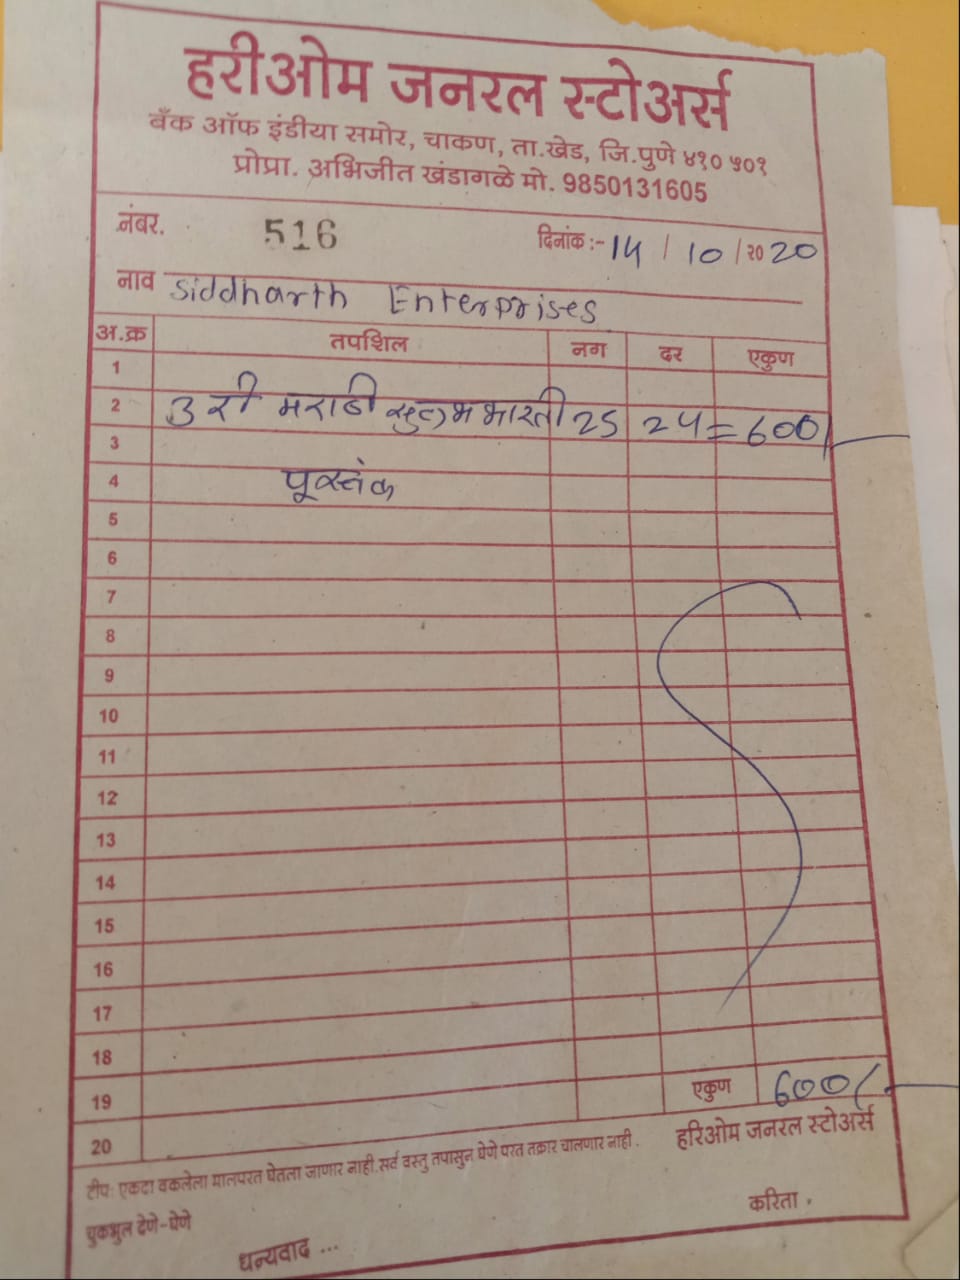 हरीओम जनरल स्टोअर्स
बँक ऑफ इंडीया समोर, चाकण, ता.खेड, जि.पुणे ४१० ५०१
प्रोप्रा. अभिजीत खंडागळे मो. 9850131605
नंबर. 516 दिनांक :- 14 / 10 / २० 20
नाव Siddharth Enterprises
अ.क्र तपशिल नग दर एकुण
1
2 3 री मराठी सुलभभारती 25 24 = 600/-
3
4 पूस्तंक
5
6
7
8
9
10
11
12
13
14
15
16
17
18
19 एकुण 600/-
20
हरिओम जनरल स्टोअर्स
टीप: एकदा वकलेला मालपरत घेतला जाणार नाही.सर्व वस्तु तपासुन घेणे परत तक्रार चालणार नाही .
चुकभुल देणे-घेणे
करिता .
धन्यवाद ...